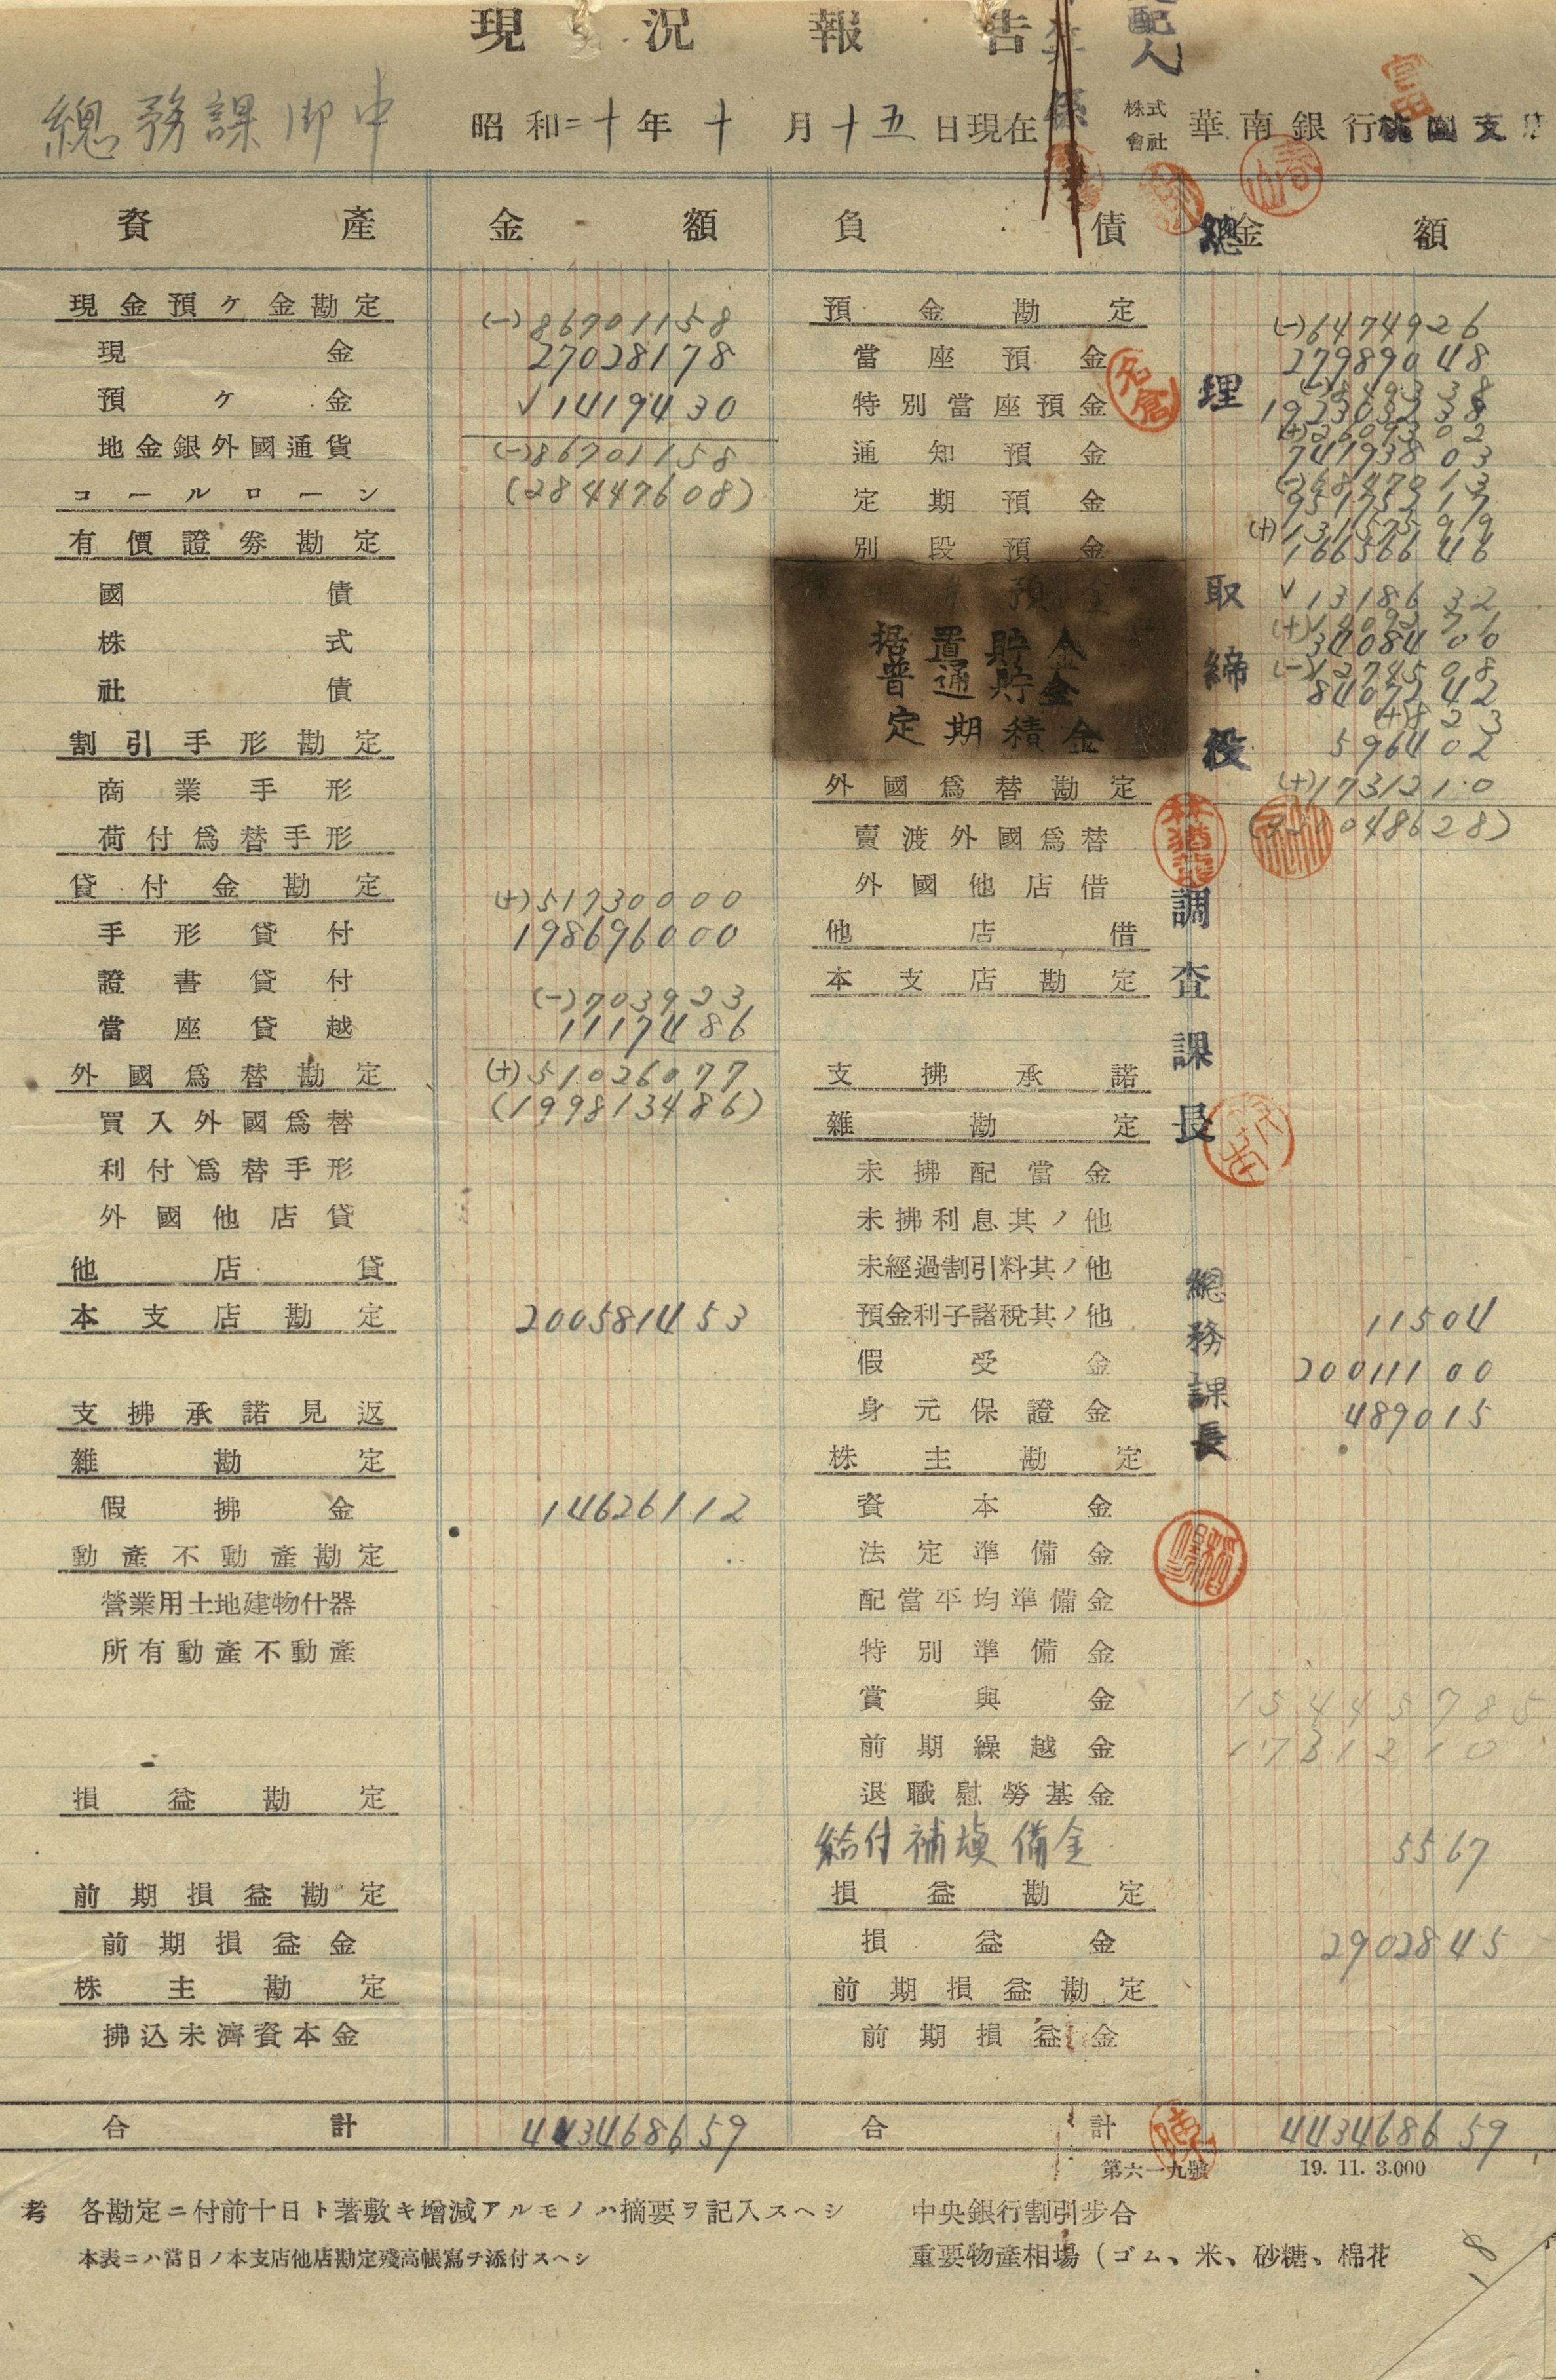 現況報告
支配人
總務課御中 昭和二十年十月十五日現在 株式會社 華南銀行桃園支店
資產 金額 負債 金額
現金預ケ金勘定 (-)86701158 預金勘定 (-)6474926
現金 27028178 當座預金 27989048
預ケ金 √1419430 特別當座預金
地金銀外國通貨 (-)86701158 通知預金 74193803
コールローン (28447608) 定期預金
有價證券勘定 別段預金 (+)13157599
16656646
國債 預金 √1318632
株式 据置貯金 3408400
社債 普通貯金 8407242
割引手形勘定 定期積金 596402
商業手形 外國爲替勘定 (+)1731210
荷付爲替手形 賣渡外國爲替
貸付金勘定 (+)51730000 外國他店借
手形貸付 198696000 他店借
證書貸付 本支店勘定
(-)703923
當座貸越 1117486
外國爲替勘定 (+)51026077 支拂承諾
買入外國爲替 (199813486) 雜勘定
利付爲替手形 未拂配當金
外國他店貸 未拂利息其ノ他
他店貸 未經過割引料其ノ他
本支店勘定 200581453 預金利子諸稅其ノ他 11504
假受金 20011100
支拂承諾見返 身元保證金 489015
雜勘定 株主勘定
假拂金 14626112 資本金
動產不動產勘定 法定準備金
營業用土地建物什器 配當平均準備金
所有動產不動產 特別準備金
賞與金 154445785
前期繰越金 1731210
損益勘定 退職慰勞基金
給付補塡備金 5567
前期損益勘定 損益勘定
前期損益金 損益金 2902845
株主勘定 前期損益勘定
拂込未濟資本金 前期損益金
合計 443468659 合計 443468659
第六一九號 19. 11. 3.000
考 各勘定ニ付前十日ト著敷キ增減アルモノハ摘要ヲ記入スヘシ 中央銀行割引步合
本表ニハ當日ノ本支店他店勘定殘高帳寫ヲ添付スヘシ 重要物產相場（ゴム、米、砂糖、棉花
總理
取締役
調查課長
總務課長
名倉
18